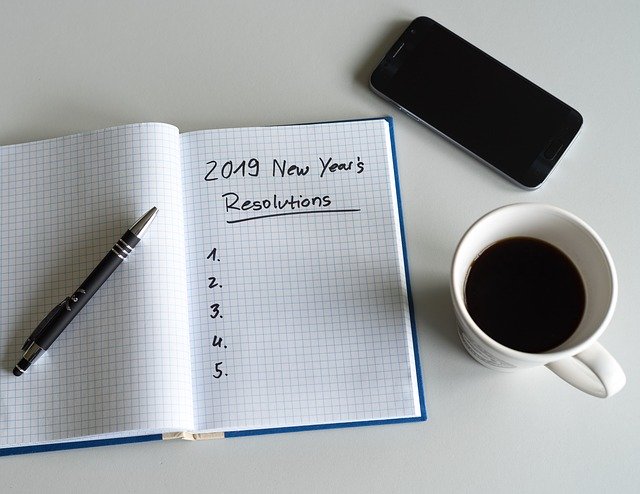 2019 New Year's
Resolutions
1.
2.
3.
4.
5.